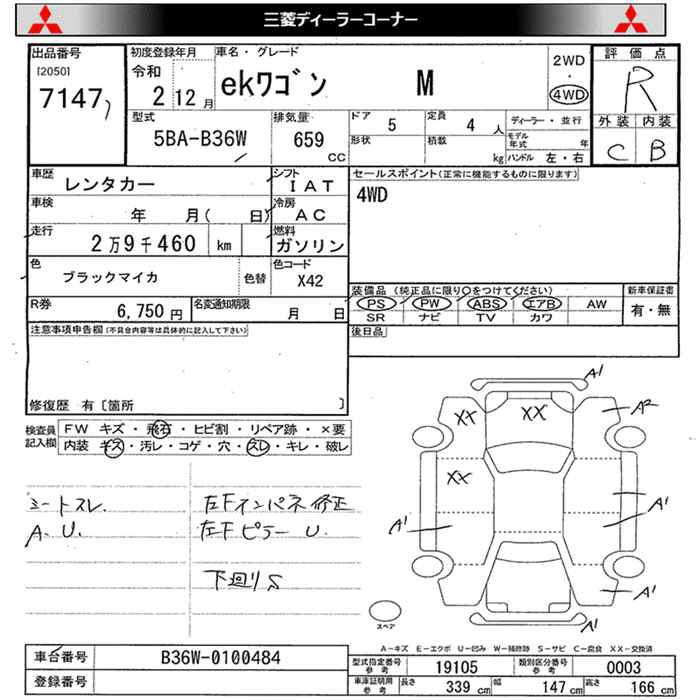 三菱ディーラーコーナー
出品番号
[2050]
7147
初度登録年月
令和
2 12月
車名・グレード
ekワゴン M
2WD
・
4WD
評価点
R
外装 内装
C B
型式
5BA-B36W
排気量
659
CC
ドア
5
定員
4 人
形状
積載
kg
ディーラー・並行
モデル年式 年
ハンドル 左・右
車歴
レンタカー
シフト
IAT
車検
年 月( 日)
冷房
AC
走行
2万9千460 km
燃料
ガソリン
色
ブラックマイカ
色替
色コード
X42
R券
6,750円
名変通知期限
月 日
セールスポイント(正常に機能するものに限ります)
4WD
装備品 (純正品に限り○をつけてください)
PS PW ABS エアB AW
SR ナビ TV カワ
新車保証書
有・無
後日品
注意事項申告欄(不具合内容等は具体的に記入して下さい)
修復歴 有〔箇所 〕
検査員記入欄
FW キズ・飛石・ヒビ割・リペア跡・×要
内装 キズ・汚レ・コゲ・穴・スレ・キレ・破レ
シートスレ.
A. U.
左Fインパネ修正
左Fピラー U.
下回りS
A1
A2
XX
XX
XX
A1
A1
A1
A1
スペア
A-キズ E-エクボ U-凹み W-補修跡 S-サビ C-腐食 XX-交換済
車台番号
B36W-0100484
登録番号
型式指定番号
参考
19105
類別区分番号
参考
0003
車庫証明用
参考
長さ
339 cm
幅
147 cm
高さ
166 cm